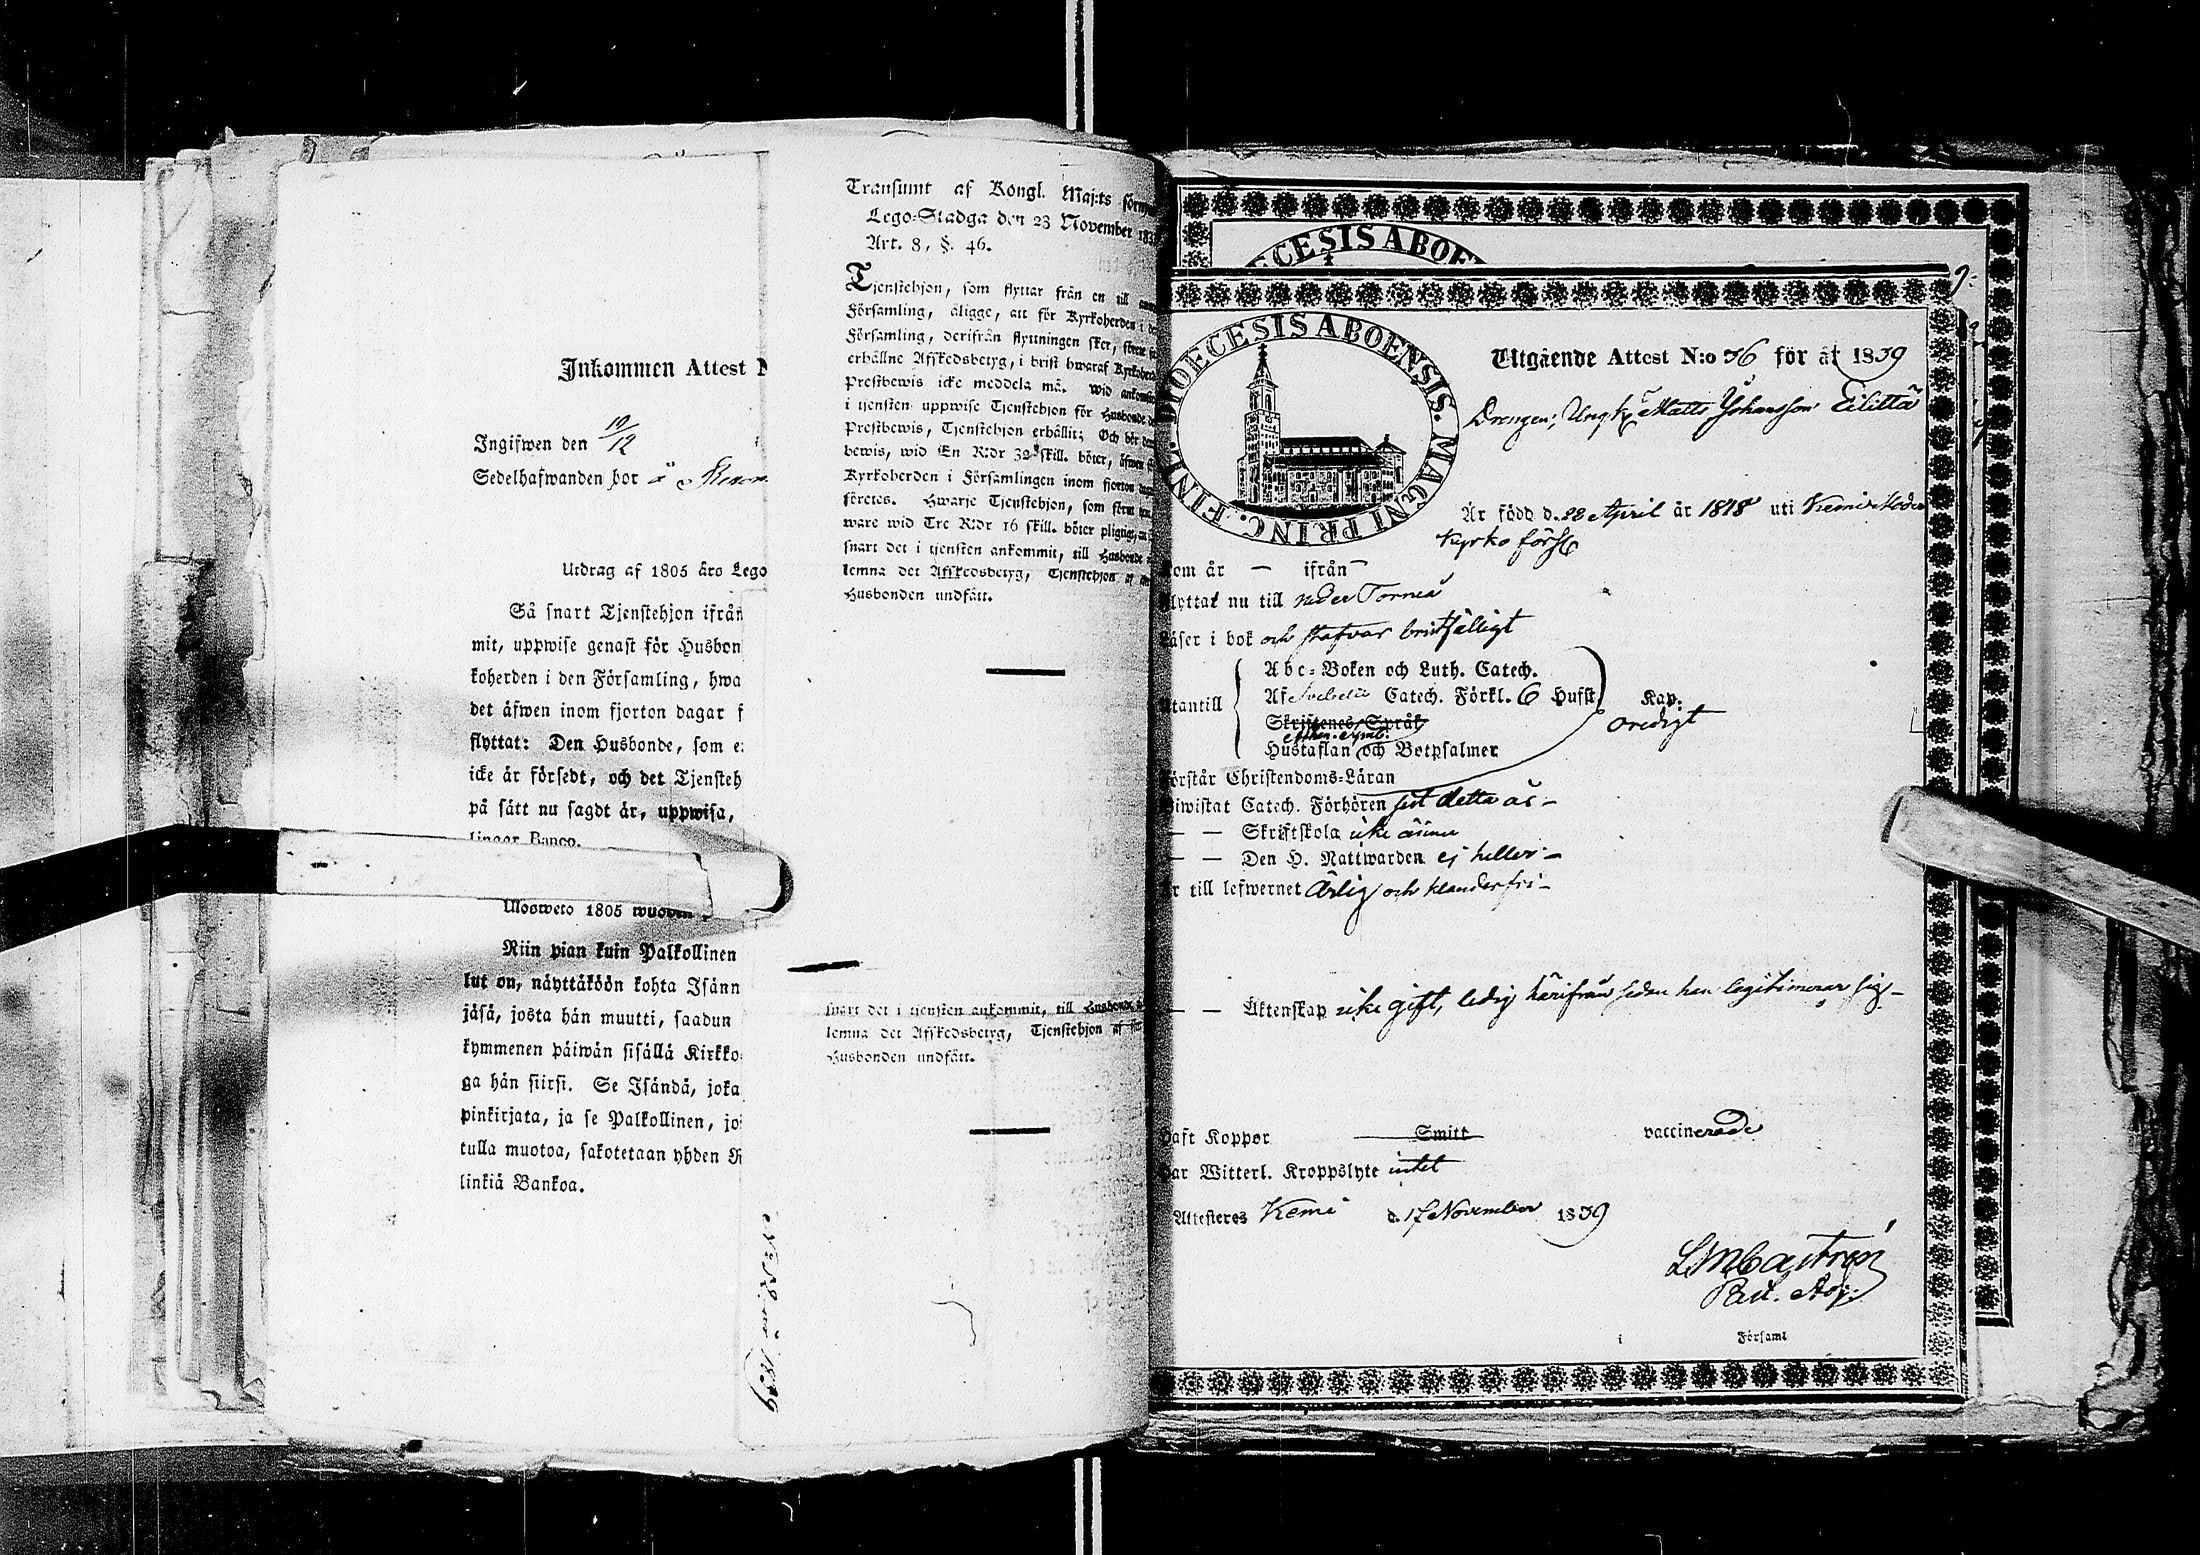 Inkommen Attest
Ingifwen den 19/12
Sedelhafwanden bor å
Utdrag af 1805 års Lego
Så snart Tjenstehjon ifrån
mit, uppwise genast för Husbon
koherden i den Församling, hwa
det äfwen inom fjorton dagar f
flyttat: Den Husbonde, som e
icke är försedt, och det Tjensteh
på sätt nu sagdt är, uppwisa,
lingar Banco.
Ulosweto 1805 wuoden
Niin pian kuin Palkollinen
lut on, näyttäköön kohta Isänn
jäsä, josta hän muutti, saadun
kymmenen päiwän sisällä Kirkko
ga hän siirsi. Se Isändä, joka
pinkirjata, ja se Palkollinen, jo
tulla muotoa, sakotetaan yhden R
linkiä Bankoa.
Transumt af Kongl. Maj:ts förny
Lego-Stadga den 23 November 183
Art. 8, §. 46.
Tjenstehjon, som flyttar från en till annan
Församling, åligge, att för Kyrkoherden i den
Församling, derifrån flyttningen sker, förete
erhållne Afskedsbetyg, i brist hwaraf Kyrkoherd
Prestbewis icke meddela må. Wid ankomst
i tjensten uppwise Tjenstehjon för Husbonde
Prestbewis, Tjenstehjon erhållit; Och bör
bewis, wid En R:dr 32 skill. böter, äfwen
Kyrkoherden i Församlingen inom fjorton
företes. Hwarje Tjenstehjon, som
ware wid Tre R:dr 16 skill. böter pligtig, at
snart det i tjensten ankommit, till Husbonde
lemna det Afskedsbetyg, Tjenstehjon af
Husbonden undfått.
snart det i tjensten ankommit, till Husbonde
lemna det Afskedsbetyg, Tjenstehjon af
Husbonden undfått.
ECESIS ABOE
9.
DIOECESIS ABOENSIS. MAGNI PRINC. FINL.
Utgående Attest N:o 36 för år 1839
Drengen, Ungk Matts Johansson Eilittä
Är född d. 28 April år 1818 uti Kemi Moder
Kyrko förs
kom år — ifrån —
flyttat nu till neder Torneå
Läser i bok och stafvar bristfälligt
Abc-Boken och Luth. Catech.
utantill Af Svebelii Catech. Förkl. 6 Hufst. Kap:
oredigt
Skriftenes Språk
Athan. symb.
Hustaflan och Botpsalmer
förstår Christendoms-Läran
biwistat Catech. Förhören sist detta år —
— — Skriftskola icke ännu
— — Den H. Nattwarden ej heller —
Är till lefwernet Ärlig och klanderfri —
— — Äktenskap icke gift, ledig härifrån sedan han legitimerar sig —
haft Koppor Smitt vaccinerade
har Witterl. Kroppslyte intet
Attesteres Kemi d. 17 November 1839
LMCastrén
Past. Adj.
i Församl